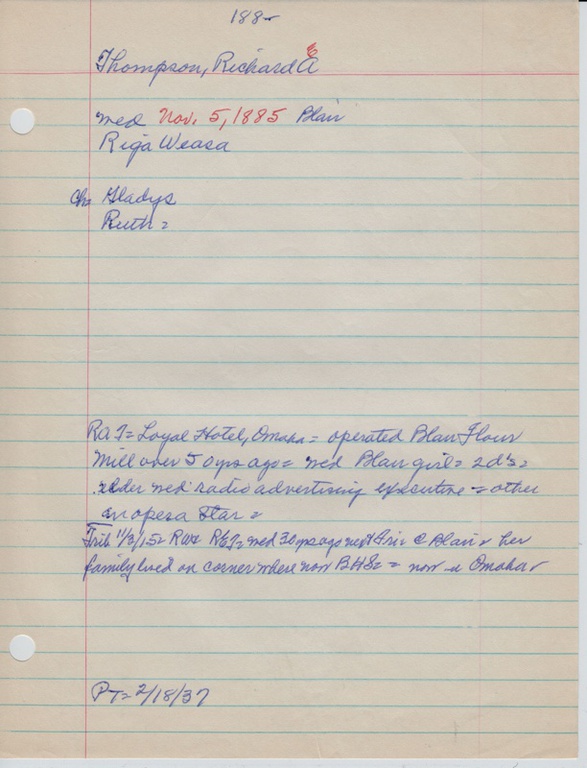 188-
Thompson, Richard A
E
med Nov. 5, 1885 Blair
Riga Weasa
Ch Gladys
Ruth =
RAT = Loyal Hotel, Omaha = operated Blair Flour
Mill over 50 yrs ago = med Blair girl = 2 d's =
elder med radio advertising executive = other
an opera star =
Trib 11/3/15 = RET = med 30 yrs ago next Fri @ Blair = her
family lived on corner where now BHS = = now in Omaha
PT = 2/18/37